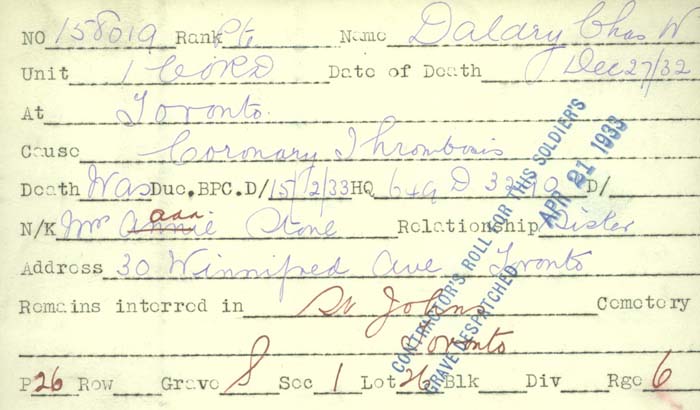 NO 158019 Rank Pte Name Daldry Chas W
Unit 1 CORD Date of Death Dec 27/32
At Toronto.
Cause Coronary Thrombosis
Death Was Due. BPC. D/ 15/2/33 HQ 649 D D/
N/K Mrs Annie ada Stone Relationship Sister
Address 30 Winnifred Ave Toronto
Remains interred in St Johns Cemetery
Toronto
P 26 Row Grave 8 Sec 1 Lot 26 Blk Div Rge 6
CONTRACTOR'S ROLL FOR THIS SOLDIER'S
GRAVE DESPATCHED APR 21 1933